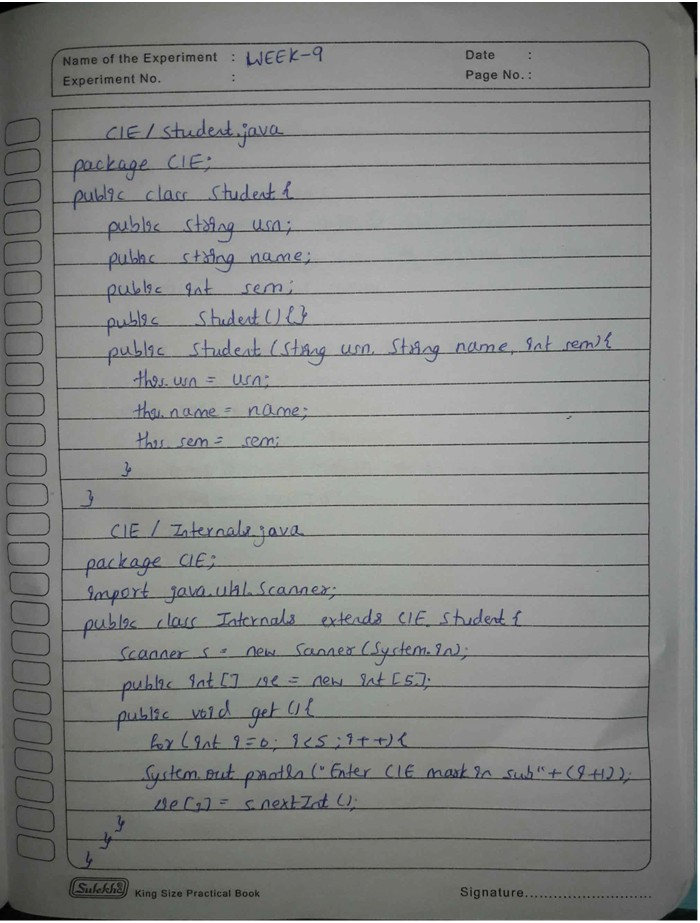 Name of the Experiment : WEEK-9
Date :
Experiment No. :
Page No. :
CIE / Student.java
package CIE;
public class Student {
public String usn;
public String name;
public int sem;
public Student () { }
public Student (String usn, String name, int sem) {
this.usn = usn;
this.name = name;
this.sem = sem;
}
}
CIE / Internals.java
package CIE;
import java.util.Scanner;
public class Internals extends CIE.Student {
Scanner s = new Sanner (System.in);
public int [] cie = new int [5];
public void get () {
for (int i=0; i<5; i++) {
System.out.println ("Enter CIE mark in sub" + (i+1));
cie [i] = s.nextInt ();
}
}
}
Sulekha King Size Practical Book
Signature